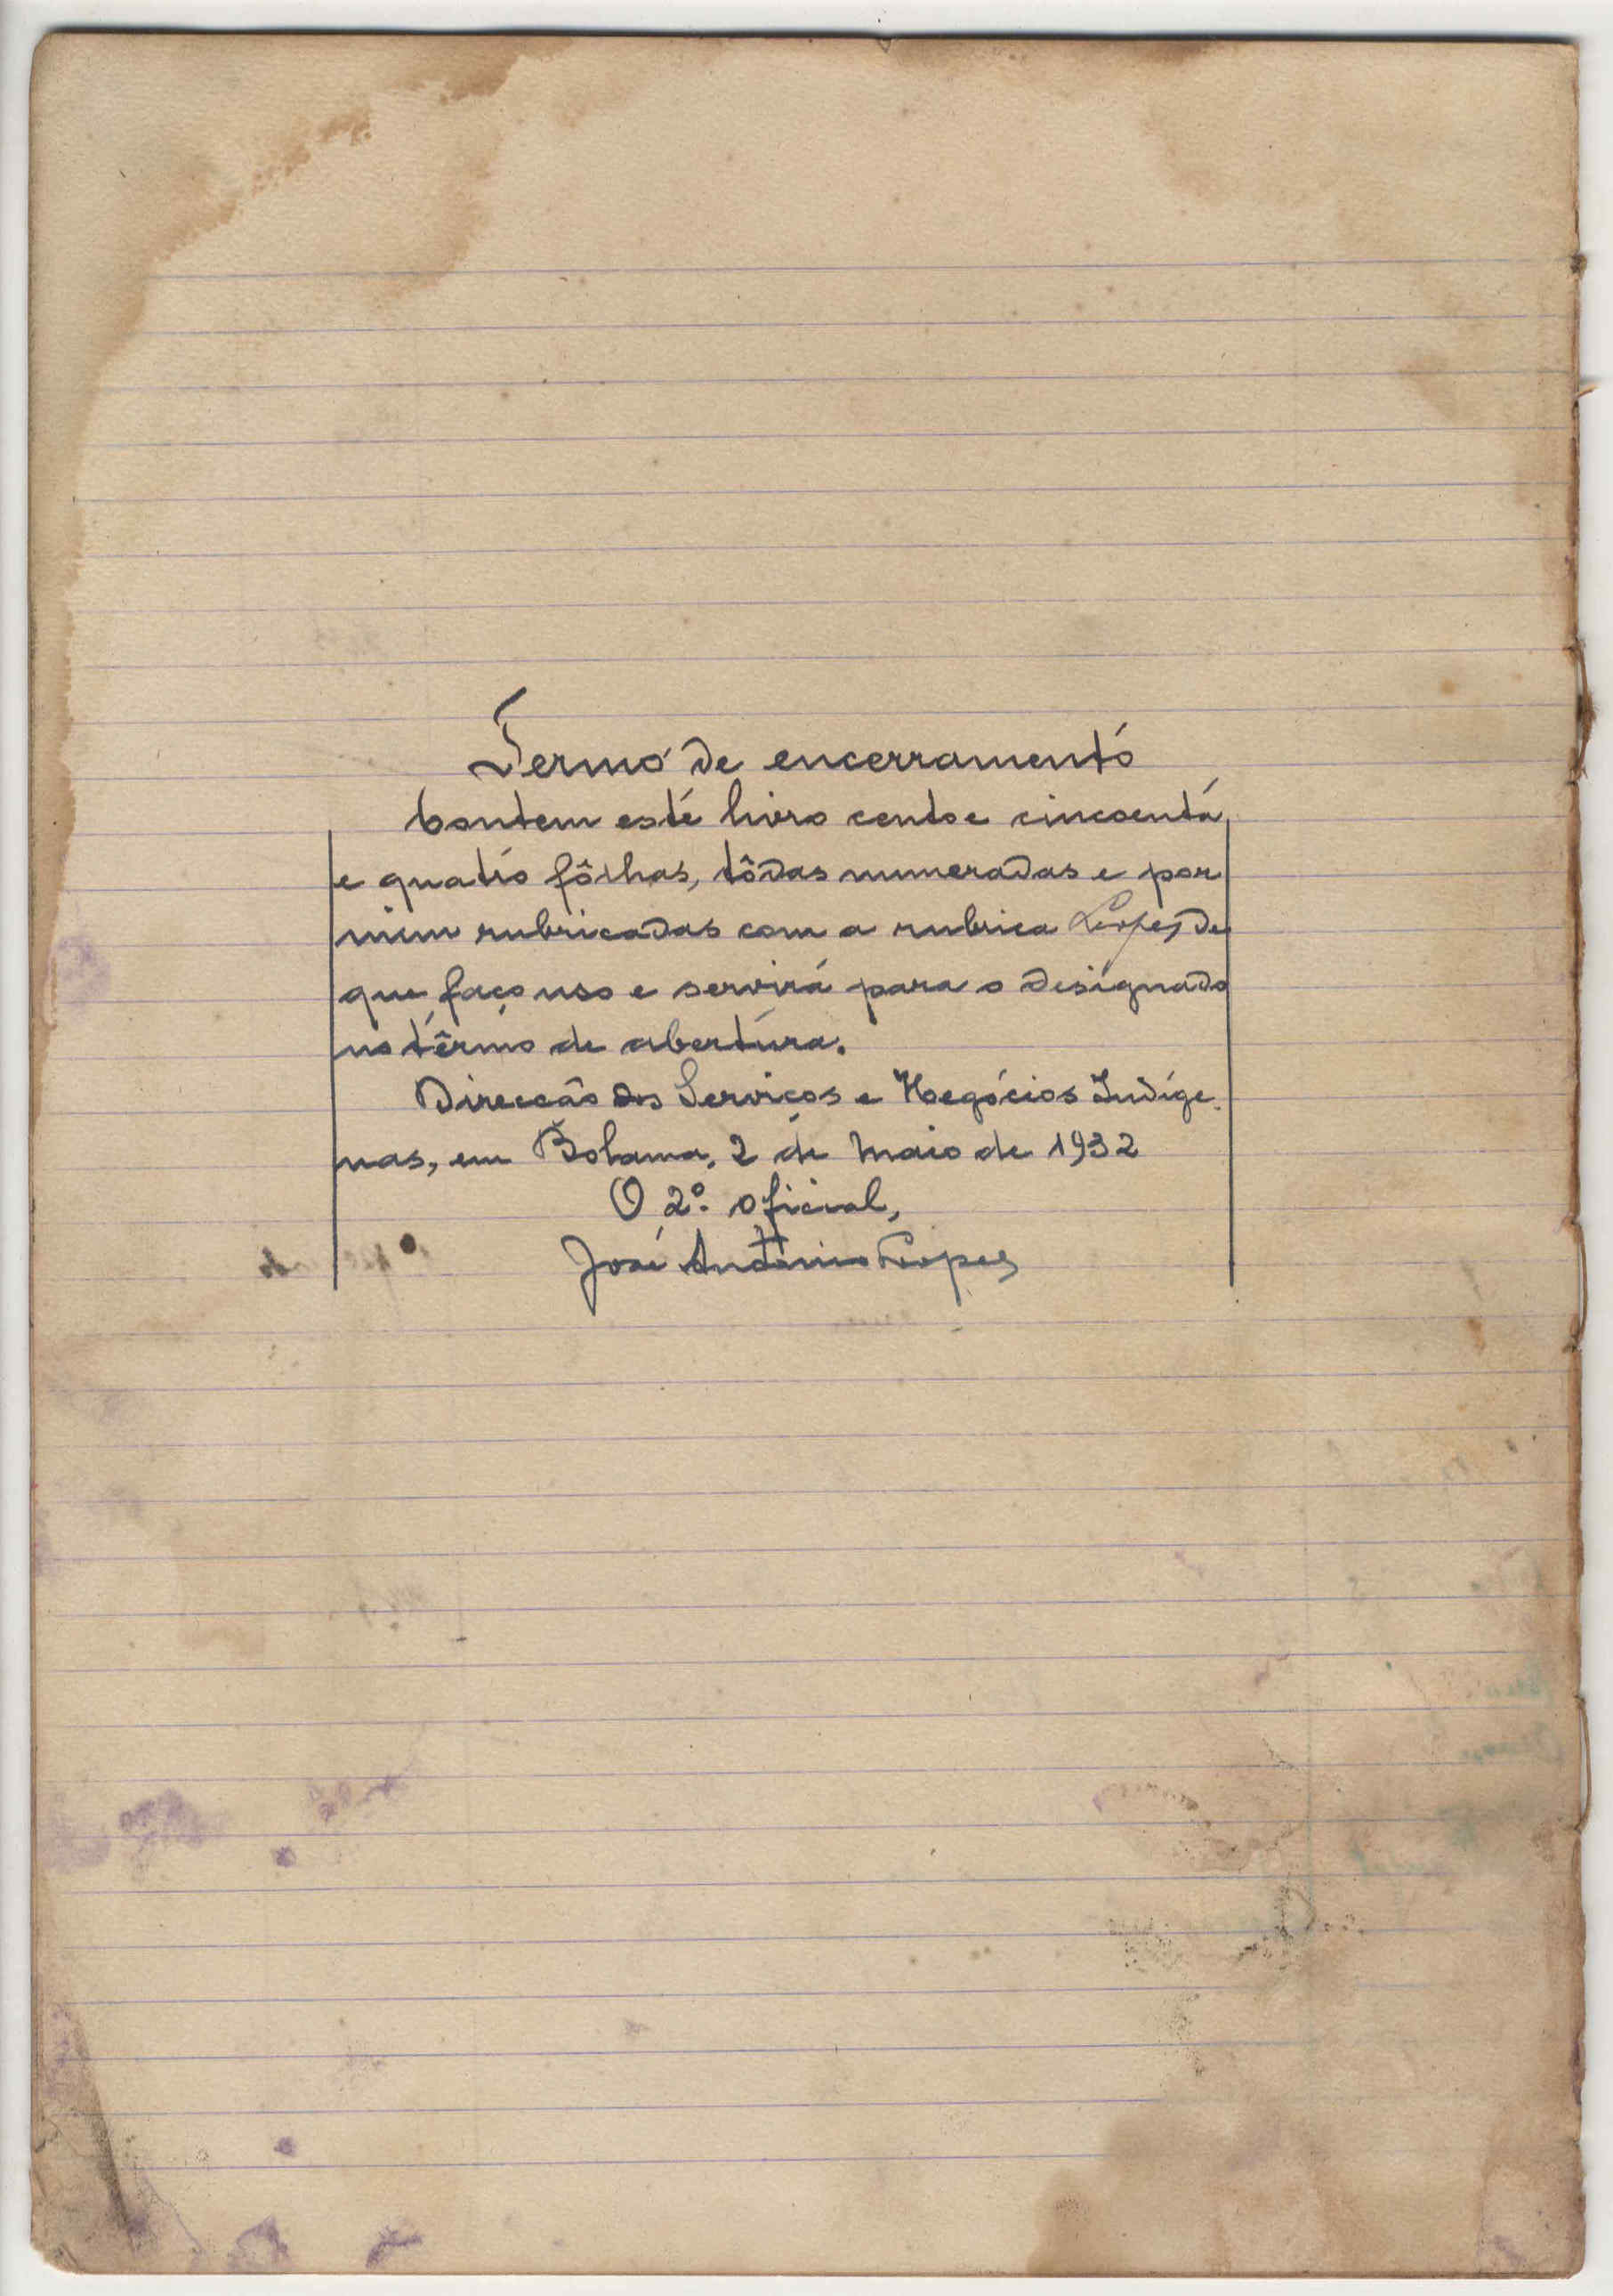 Termo de encerramento
Contem este livro cento e cincoenta
e quatro fôlhas, tôdas numeradas e por
mim rubricadas com a rubrica Lopes de
que faço uso e servirá para o designado
no têrmo de abertura.
Direcção dos Serviços e Negócios Indíge-
nas, em Bolama, 2 de Maio de 1932
O 2º. oficial,
José António Lopes